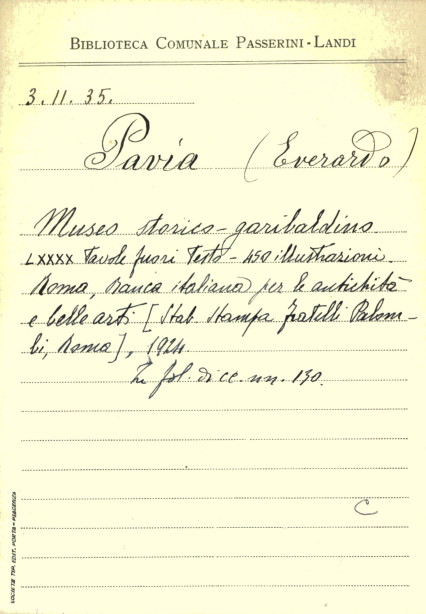 BIBLIOTECA COMUNALE PASSERINI-LANDI
3.11.35.
Pavia (Everardo)
Museo storico-garibaldino
LXXXX Tavole fuori testo - 450 illustrazioni.
Roma, Banca italiana per le antichità
e belle arti [Stab. Stampa fratelli Palom-
bi, Roma], 1924.
fol. di cc. nn. 130.
C
SOCIETÀ TIP. EDIT. PORTA - PIACENZA